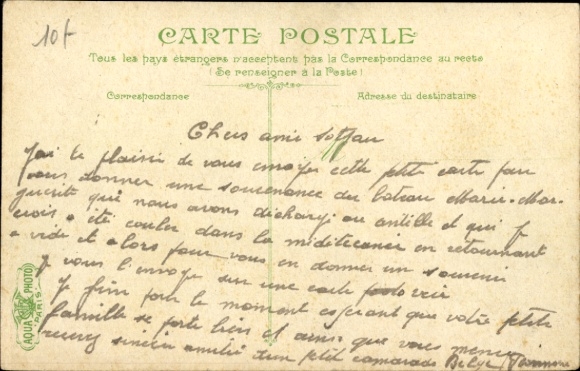 10f
CARTE POSTALE
Tous les pays étrangers n'acceptent pas la Correspondance au recto
(Se renseigner à la Poste)
Correspondance
Adresse du destinataire
Chers ami
J'ai le plaisir de vous envoyer cette petite carte pour
vous donner une souvenance du bateau Marie-Mar-
guerite que nous avons décharg au antille et qui j
crois a été couler dans la méditeranee en retournant
a vide et alors pour vous en donner un souvenir
j vous l'envoye sur une carte
J fini pour le moment esperant que votre petite
famille se porte bien et ainsi que vous
recevez sincère amitié d'un ptit camarade
AQUA PHOTO
PARIS